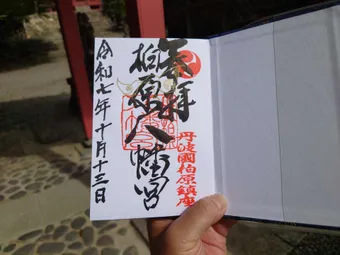 奉拝
柏原八幡宮
丹波國柏原鎮座
令和七年十月十三日